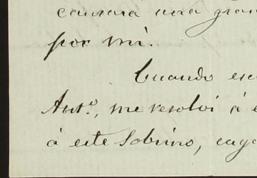 causara una gran
por mi.
Cuando esc
Ant.º, me resolví á e
á este Sobrino, cuya